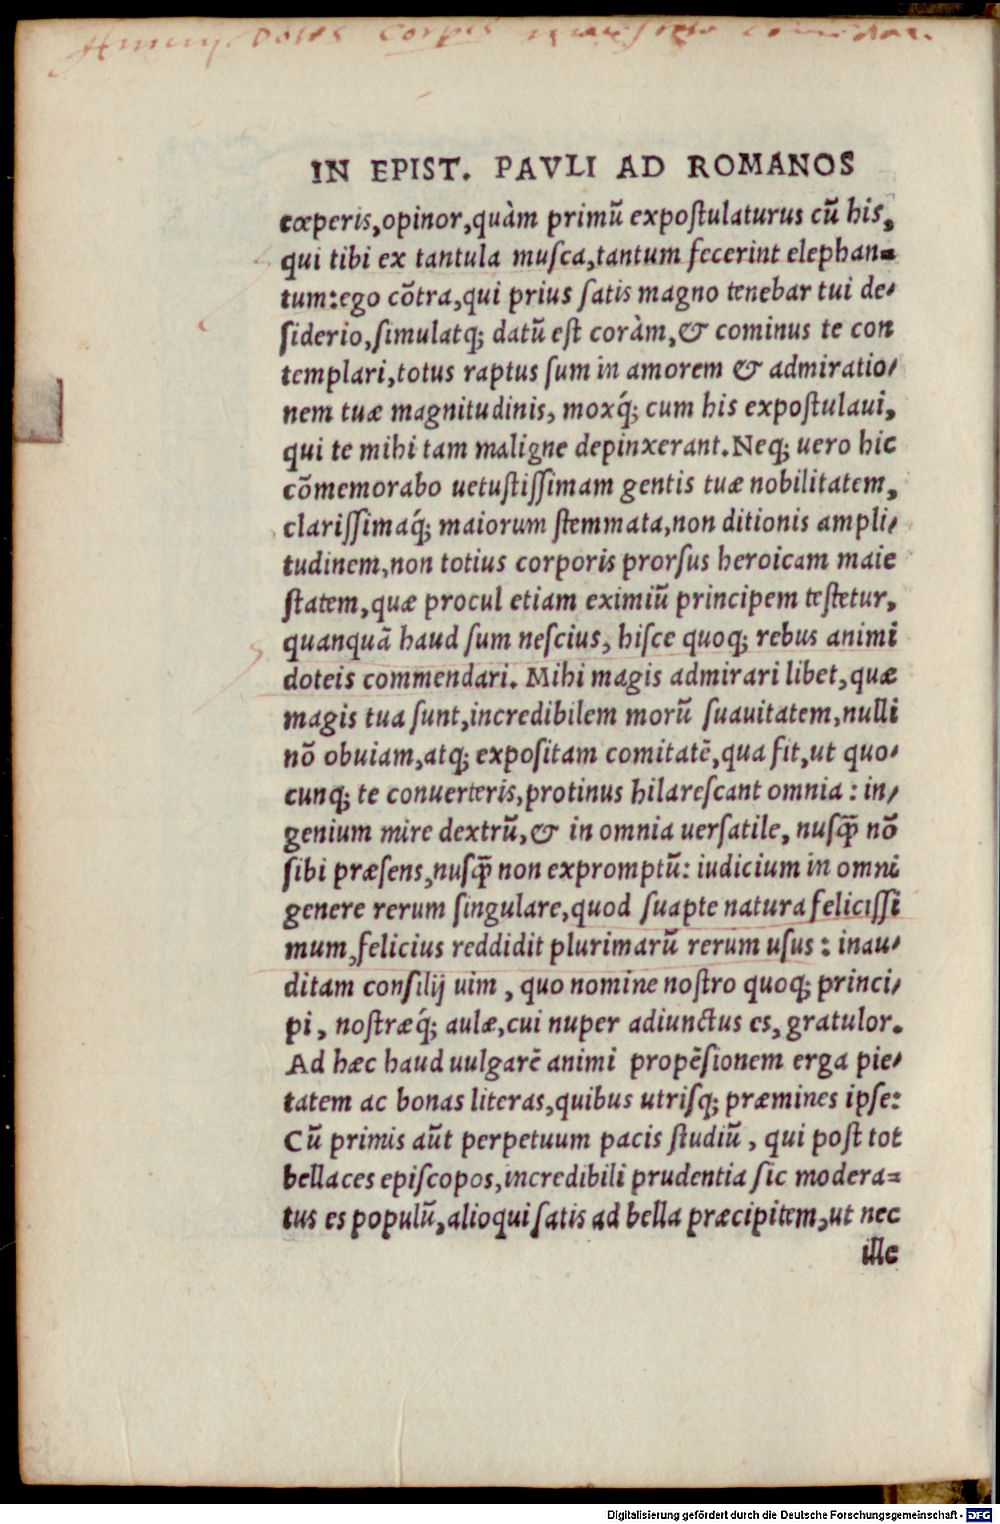 Dotes corpis
IN EPIST. PAVLI AD ROMANOS
cœperis, opinor, quàm primũ expoſtulaturus cũ his,
qui tibi ex tantula muſca, tantum fecerint elephan=
tum: ego cõtra, qui prius ſatis magno tenebar tui de-
ſiderio, ſimulatq; datũ eſt coràm, & cominus te con
templari, totus raptus ſum in amorem & admiratio-
nem tuæ magnitudinis, moxq́; cum his expoſtulaui,
qui te mihi tam maligne depinxerant. Neq; uero hic
cõmemorabo uetuſtiſſimam gentis tuæ nobilitatem,
clariſſimaq́; maiorum ſtemmata, non ditionis ampli-
tudinem, non totius corporis prorſus heroicam maie
ſtatem, quæ procul etiam eximiũ principem teſtetur,
quanquã haud ſum neſcius, hiſce quoq; rebus animi
doteis commendari. Mihi magis admirari libet, quæ
magis tua ſunt, incredibilem morũ ſuauitatem, nulli
nõ obuiam, atq; expoſitam comitatẽ, qua fit, ut quo-
cunq; te conuerteris, protinus hilareſcant omnia: in-
genium mire dextrũ, & in omnia uerſatile, nuſq̃ nõ
ſibi præſens, nuſq̃ non expromptũ: iudicium in omni
genere rerum ſingulare, quod ſuapte natura feliciſſi
mum, felicius reddidit plurimarũ rerum uſus: inau-
ditam conſilij uim, quo nomine noſtro quoq; princi-
pi, noſtræq́; aulæ, cui nuper adiunctus es, gratulor.
Ad hæc haud uulgarẽ animi propẽſionem erga pie-
tatem ac bonas literas, quibus utriſq; præmines ipſe:
Cũ primis aũt perpetuum pacis ſtudiũ, qui poſt tot
bellaces epiſcopos, incredibili prudentia ſic modera=
tus es populũ, alioqui ſatis ad bella præcipitem, ut nec
ille
Digitalisierung gefördert durch die Deutsche Forschungsgemeinschaft - DFG